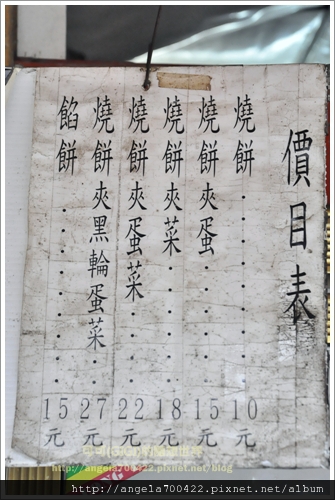 價目表
燒餅..........10元
燒餅夾蛋.......15元
燒餅夾菜.......18元
燒餅夾蛋菜.....22元
燒餅夾黑輪蛋菜..27元
餡餅..........15元
http://angela700422.pixnet.net/blog
http://angela700422.pixnet.net/album